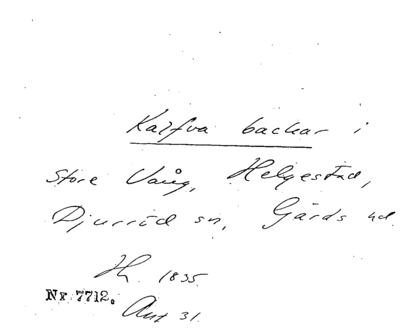 Kalfva backar i
Store Vång, Helgestad,
Djurröd sn, Gärds hd.
1835
Nr 7712.
Ant 31.